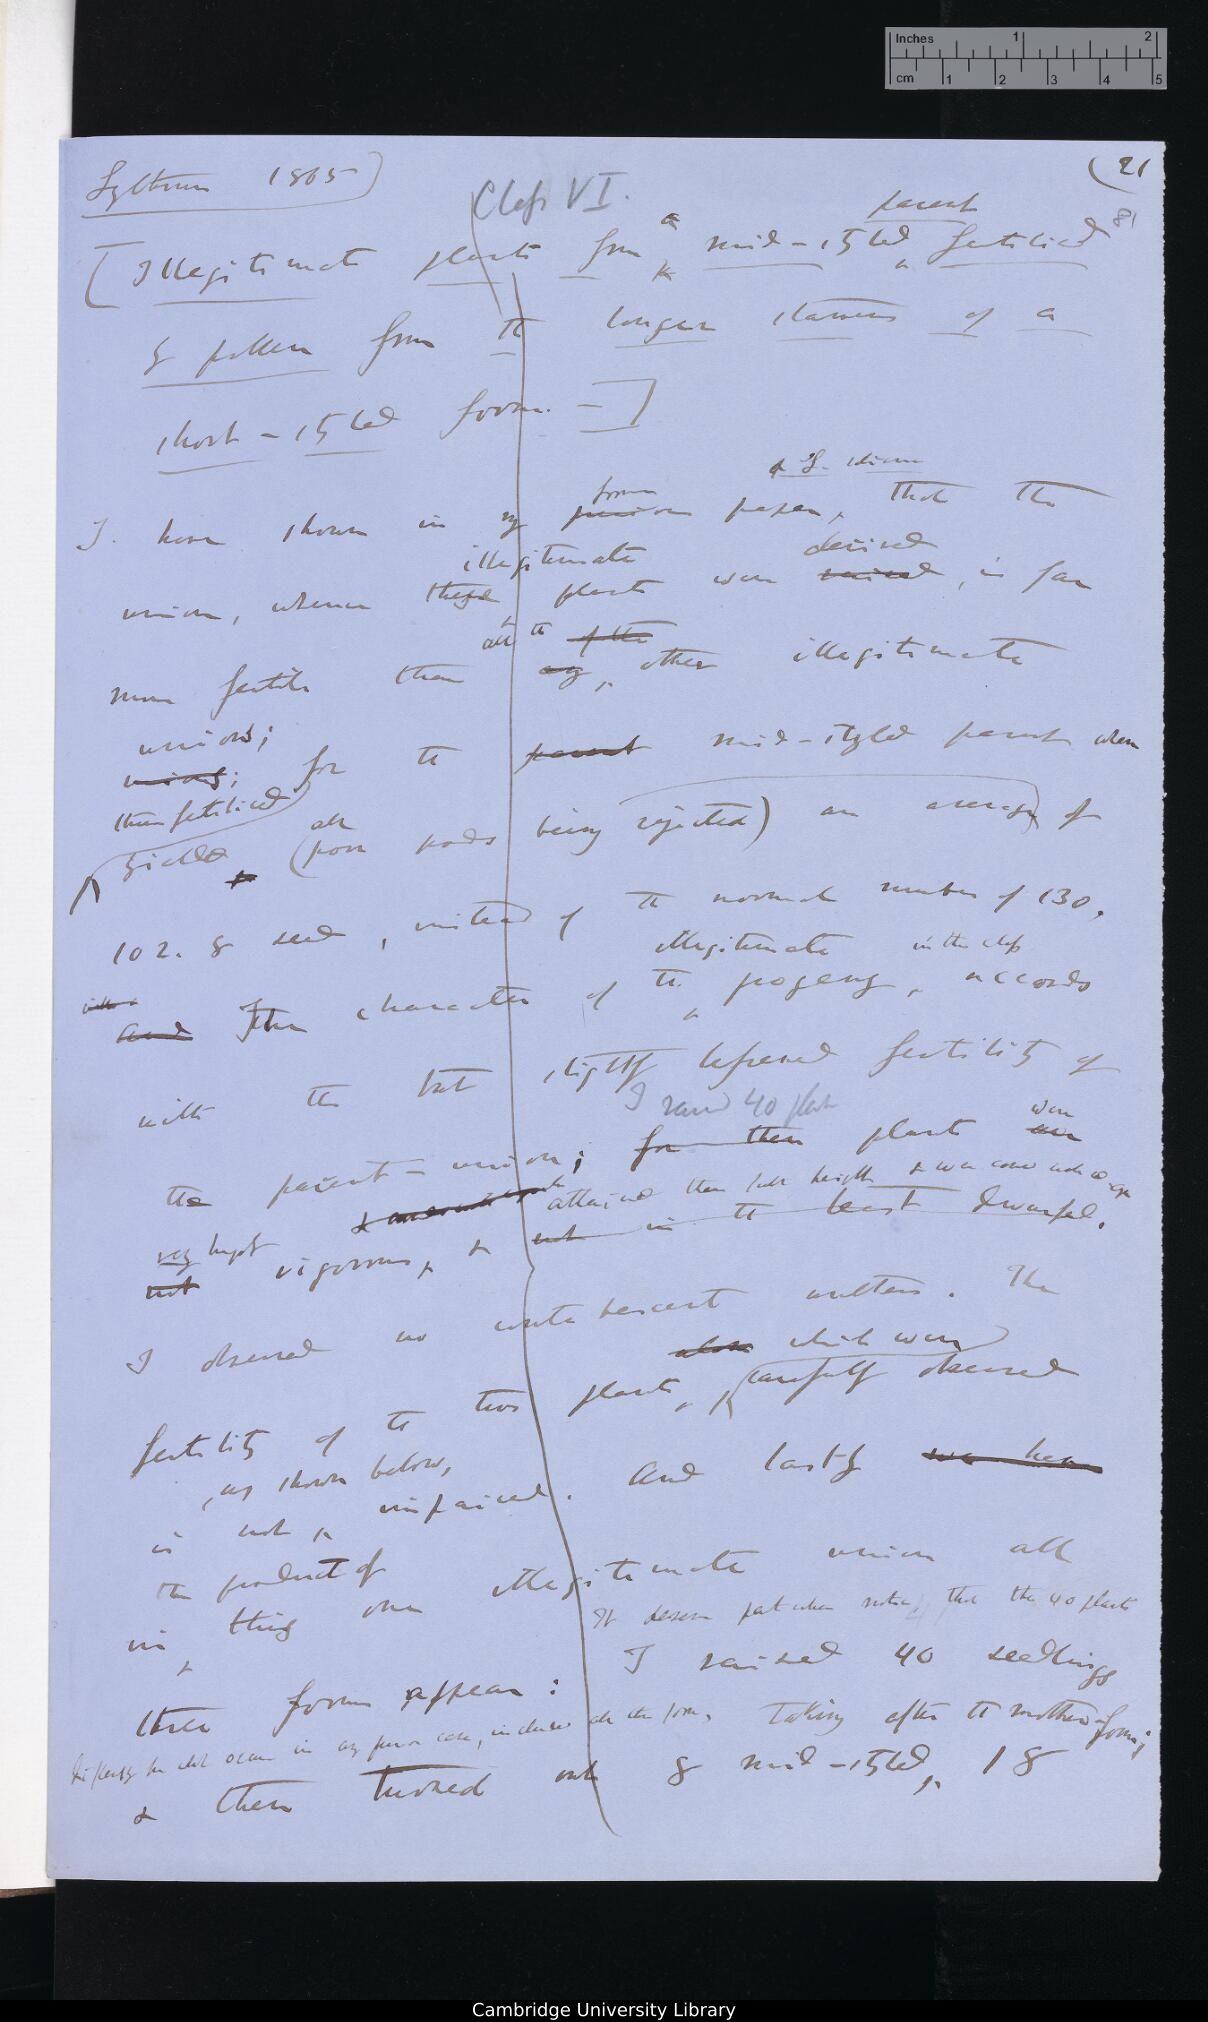 Inches 1 2
cm 1 2 3 4 5
Lythrum 1865)
(21
Class VI.
81
parent
[Illegitimate plants from a mid-styled fertilised
by pollen from the longer stamens of a
short-styled form. —]
& L. salicaria
former
I have shown in my previous paper, that the
illegitimate derived
union, whence these plants were raised, is far
all the of the
more fertile than any other illegitimate
unions;
unions; for the parent mid-styled parent when
thus fertilised
all
yielded (poor pods being rejected) an average of
102.8 seed, instead of the normal number of 130.
illegitimate in this class
with
and The character of the progeny, accords
with the but slightly lessened fertility of
I raised 40 plants
were
the parent-union; for these plants are
attained their full height & were
very
not vigorous, & not in the least dwarfed.
I observed no anthers. The
also which were
fertility of the two plants, carefully observed
, as shown below,
is not impaired. And lastly we have
the product of
in this one illegitimate union all
It deserve notice, that the 40 plants
I raised 40 seedlings
three forms appear:
taking after the mother-form;
& these turned out 8 mid-styled, 18
Cambridge University Library